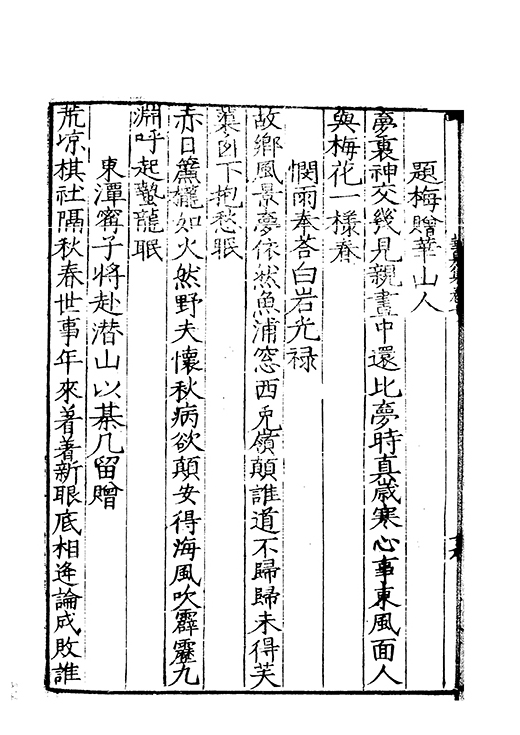 題梅贈華山人
夢裏神交幾見親畫中還比夢時真歲寒心事東風面人
與梅花一樣春
憫雨奉荅白岩光禄
故鄉風景夢依然魚浦窓西兎嶺顛誰道不歸歸未得芙
蕖図下抱愁眠
赤日簾櫳如火然野夫懷秋病欲顛安得海風吹霹靂九
淵呼起蟄龍眠
東潭甯子將赴潜山以棊几留贈
荒凉棋社隔秋春世事年來着着新眼底相逢論成敗誰